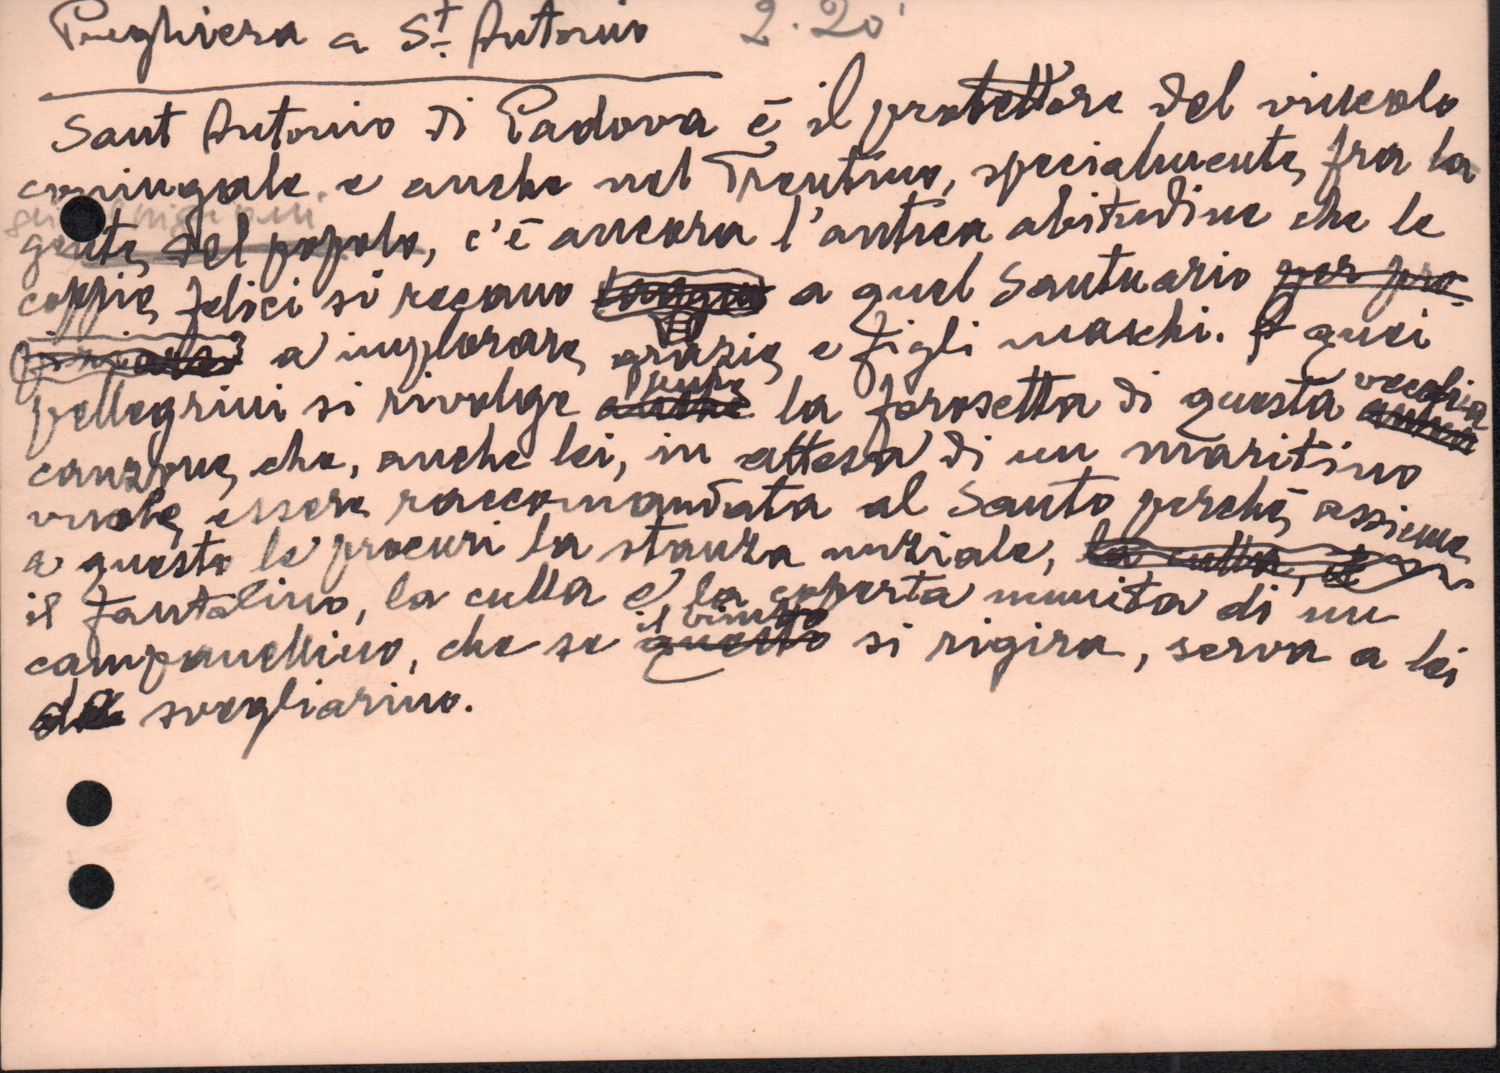 Preghiera a St. Antonio 2.20'
Sant Antonio di Padova è il protettore del vincolo
coniugale e anche nel Trentino, specialmente, fra la
gente, del popolo, c'è ancora l'antica abitudine che le
coppie, felici si recano a quel Santuario per pro-
a implorare, grazie, e figli maschi. A quei
pellegrini si rivolge pure la forosetta di questa vecchia
canzone, che, anche lei, in attesa di un maritino
vuole, essere raccomandata al Santo perchè, assieme
a questo le procuri la stanza nuziale, la culla, il
il fantolino, la culla e la coperta munita di un
campanellino, che se il bimbo si rigira, serva a lei
da svegliarino.